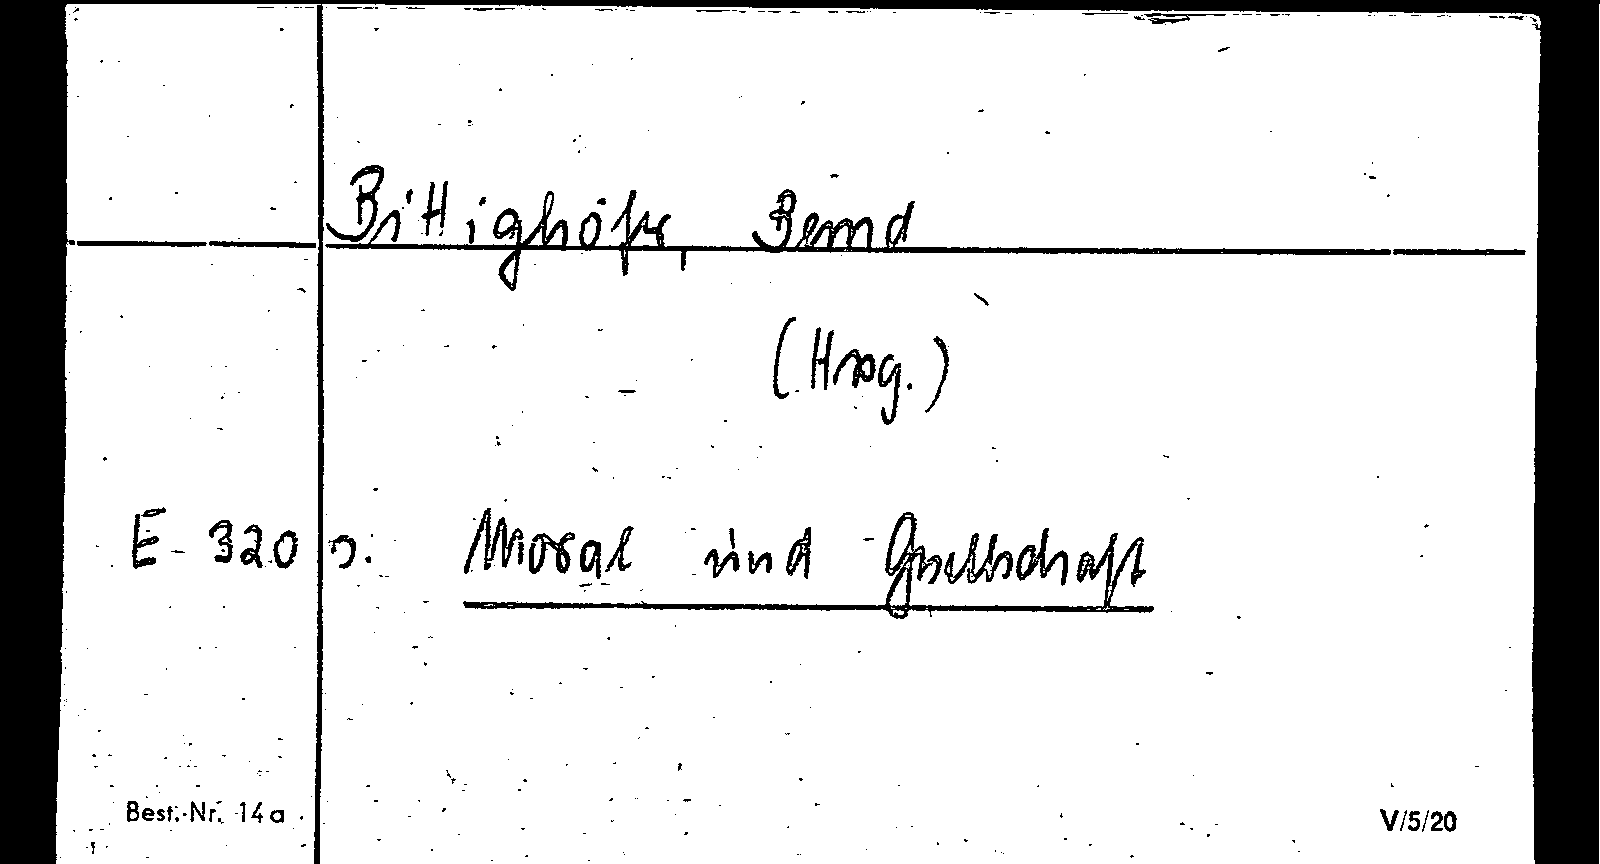 Bittighöfer, Bernd
(Hrsg.)
E - 320 s. Moral und Gesellschaft
Best.-Nr. 14a
V/5/20